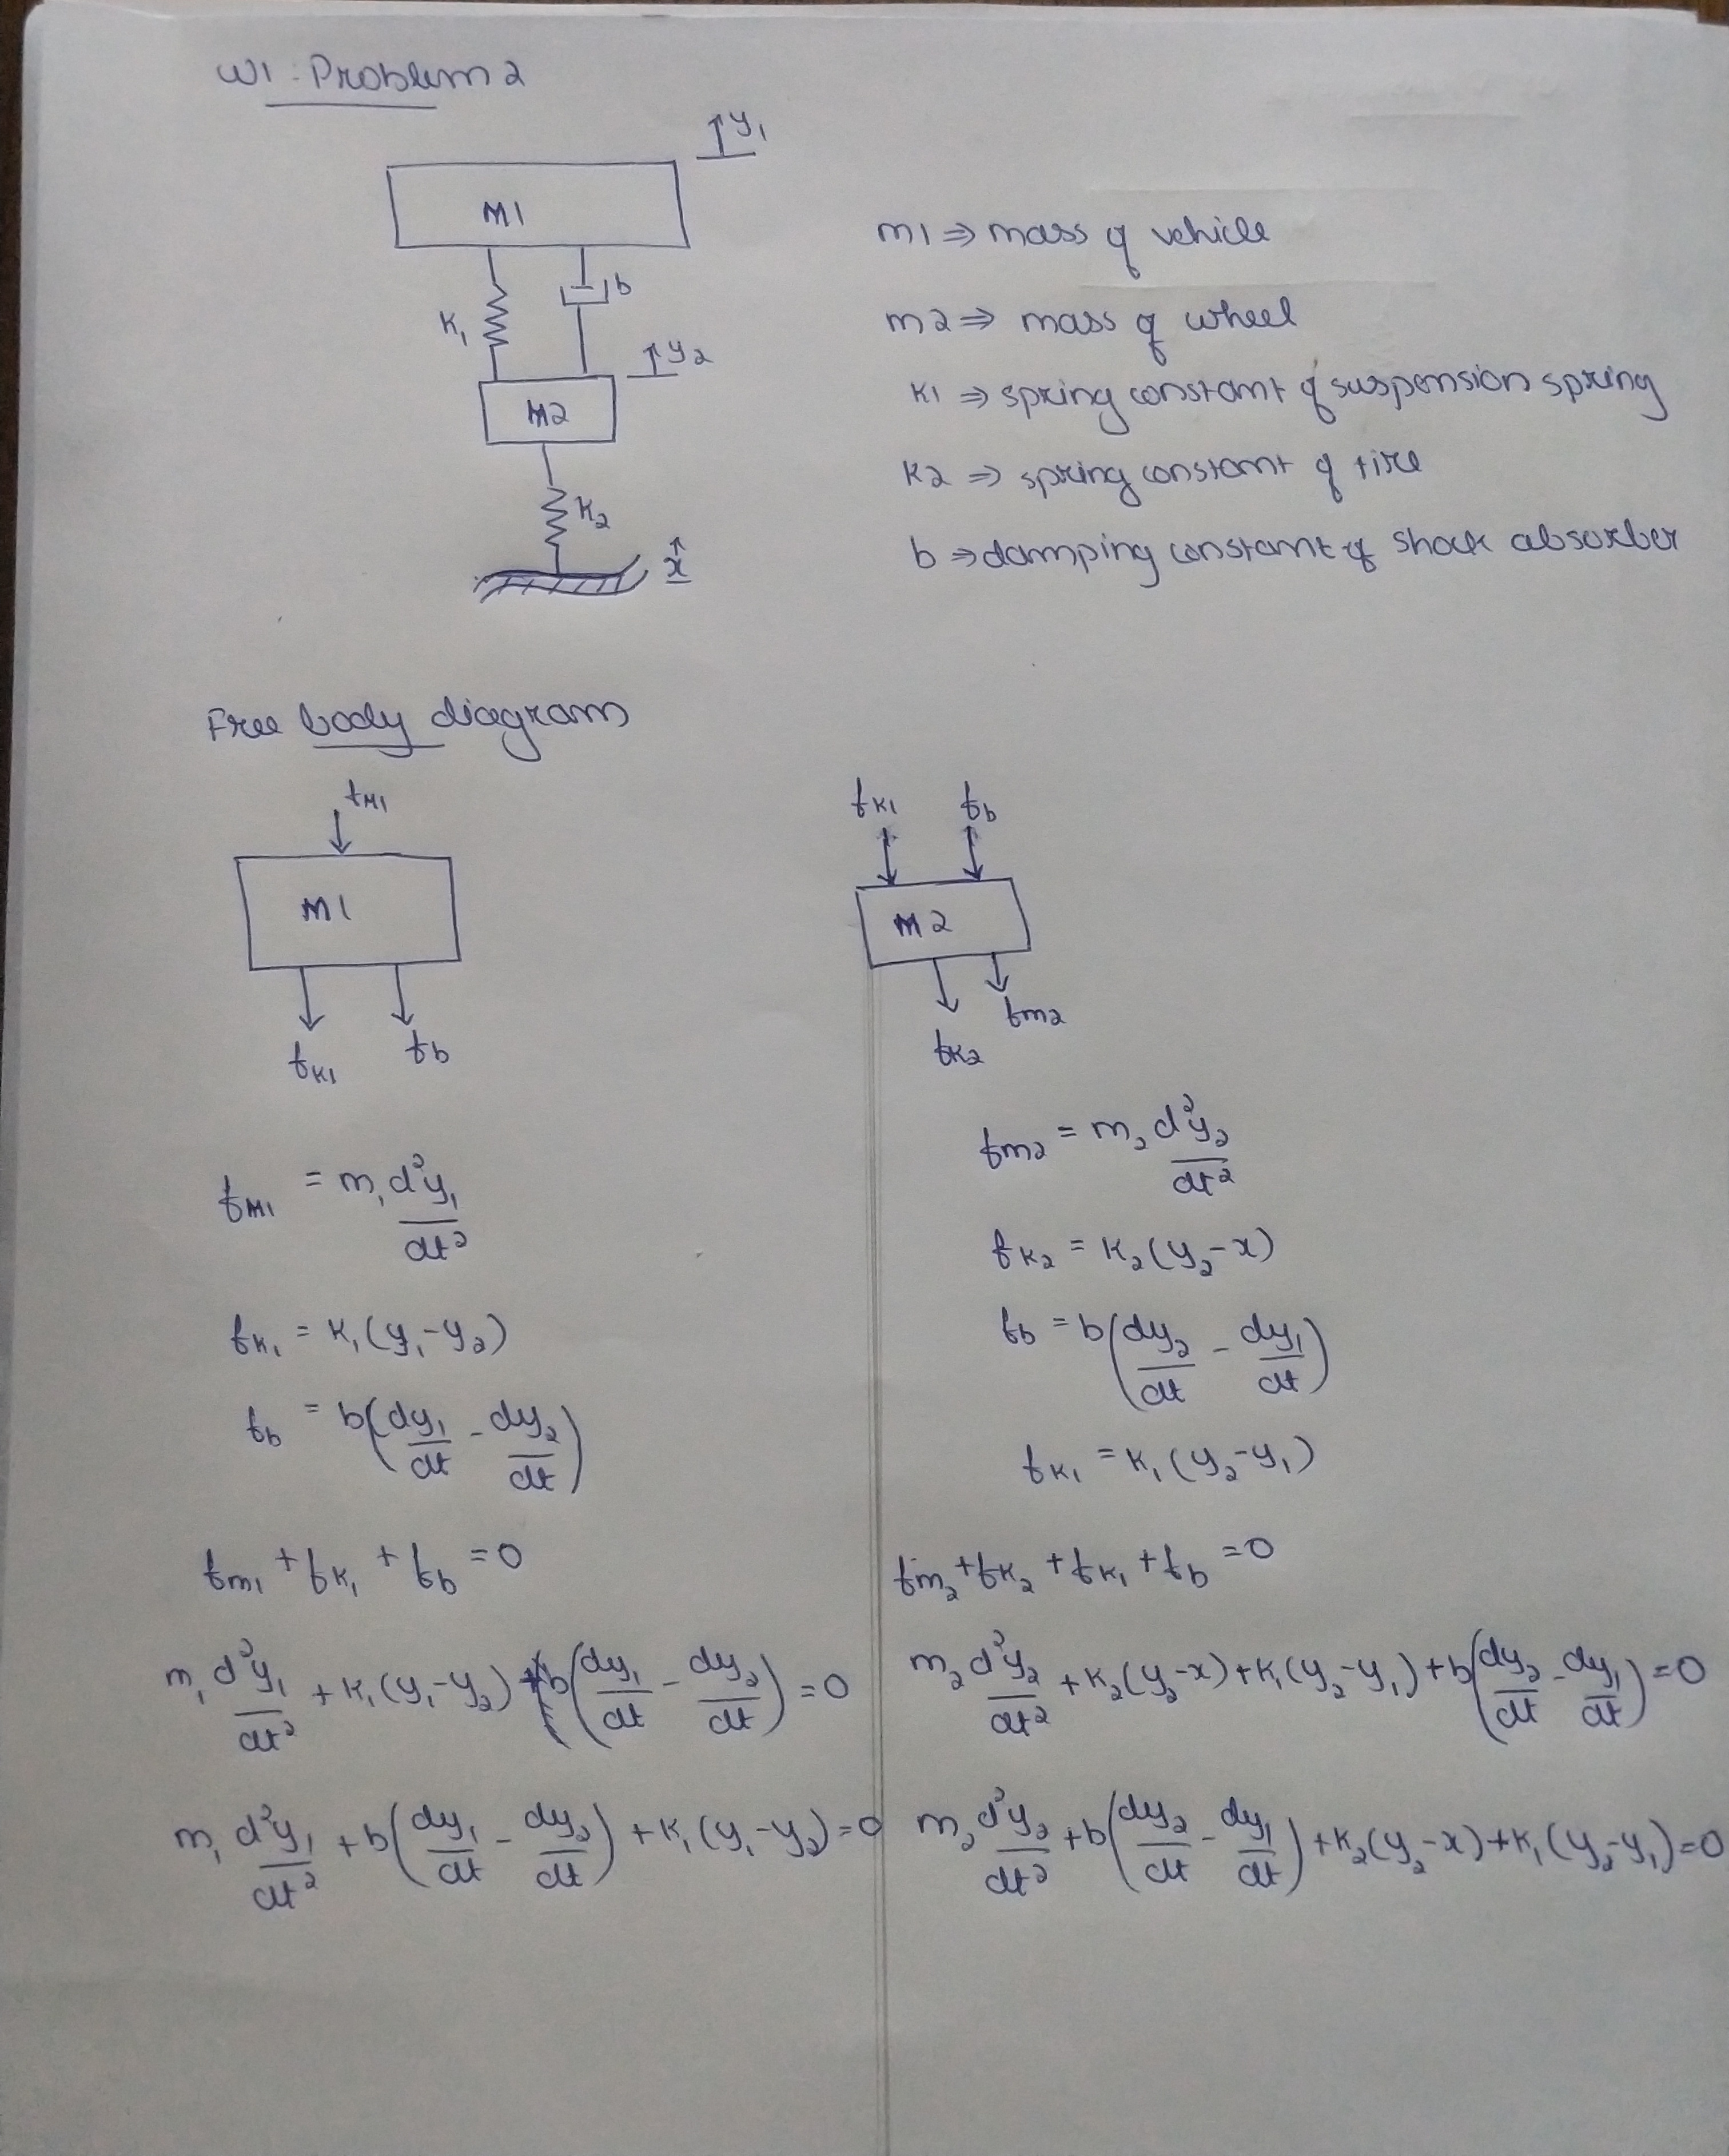 W1 : Problem 2
↑y₁
M1
K₁
b
↑y₂
M2
K₂
x
m1 ⇒ mass of vehicle
m2 ⇒ mass of wheel
K1 ⇒ spring constant of suspension spring
K2 ⇒ spring constant of tire
b ⇒ damping constant of shock absorber
Free body diagram
fM1
M1
fK1 fb
fK1 fb
M2
fK2 fm2
fM1 = m₁ d²y₁/dt²
fK₁ = K₁(y₁-y₂)
fb = b(dy₁/dt - dy₂/dt)
fm₁ + fK₁ + fb = 0
m₁ d²y₁/dt² + K₁(y₁-y₂) + b(dy₁/dt - dy₂/dt) = 0
m₁ d²y₁/dt² + b(dy₁/dt - dy₂/dt) + K₁(y₁-y₂) = 0
fm2 = m₂ d²y₂/dt²
fK₂ = K₂(y₂-x)
fb = b(dy₂/dt - dy₁/dt)
fK₁ = K₁(y₂-y₁)
fm₂ + fK₂ + fK₁ + fb = 0
m₂ d²y₂/dt² + K₂(y₂-x) + K₁(y₂-y₁) + b(dy₂/dt - dy₁/dt) = 0
m₂ d²y₂/dt² + b(dy₂/dt - dy₁/dt) + K₂(y₂-x) + K₁(y₂-y₁) = 0